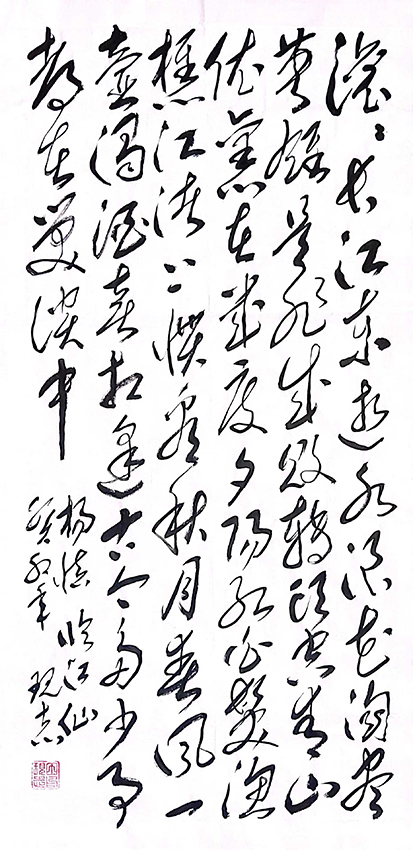 滚滚长江东逝水浪花淘尽
英雄是非成败转头空青山
依旧在几度夕阳红白发渔
樵江渚上惯看秋月春风一
壶浊酒喜相逢古今多少事
都在笑谈中
杨慎 临江仙
癸卯年